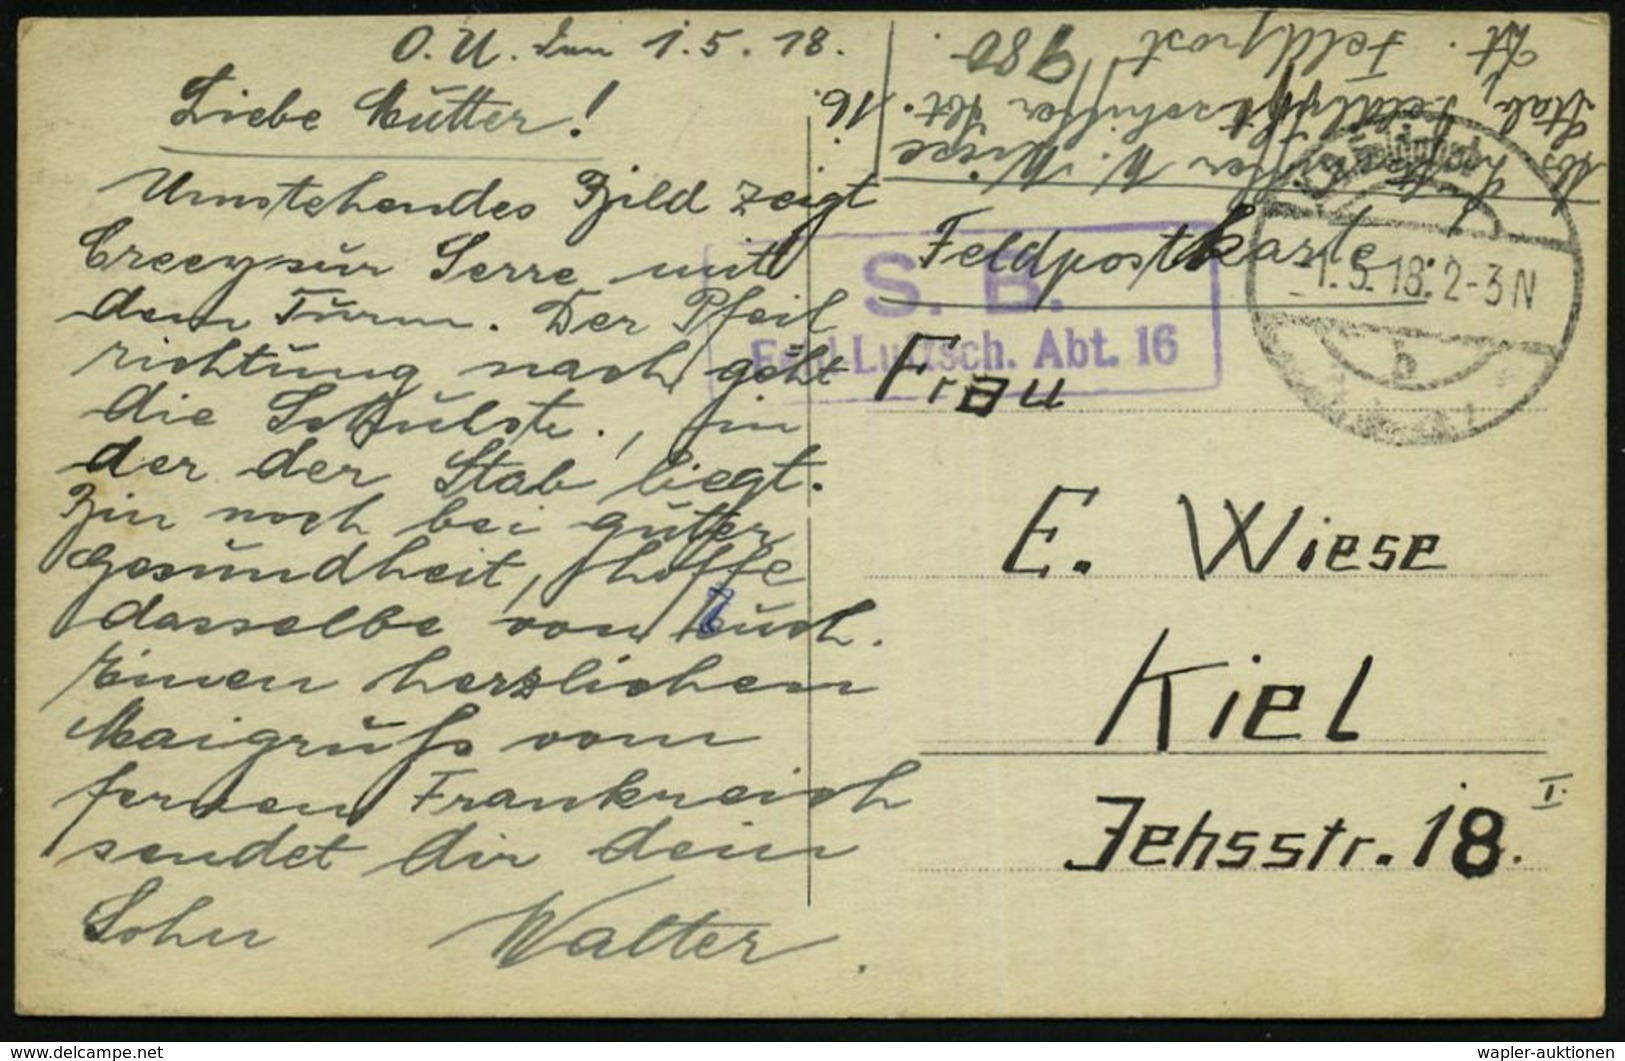 O. U. den 1. 5. 18.
Liebe Mutter!
Umstehendes Bild zeigt
Crecy sur Serre mit
dem Turm. Der Pfeil
richtung nach geht
die Schulstr., in
der der Stab liegt.
Bin noch bei guter
Gesundheit, hoffe
dasselbe von Euch.
Einen herzlichen
Maigruß vom
fernen Frankreich
sendet dir dein
Sohn Walter.
Abs. Luftschiffer W. Wiese
Stab, Feldluftschiffer Abt. 16.
Dt. Feldpost 980.
Feldpost
-1.5.18. 2-3 N
b
S. B.
Feld-Luftsch. Abt. 16
Feldpostkarte
Frau
E. Wiese
Kiel
Jehsstr. 18. I.
wapler-auktionen